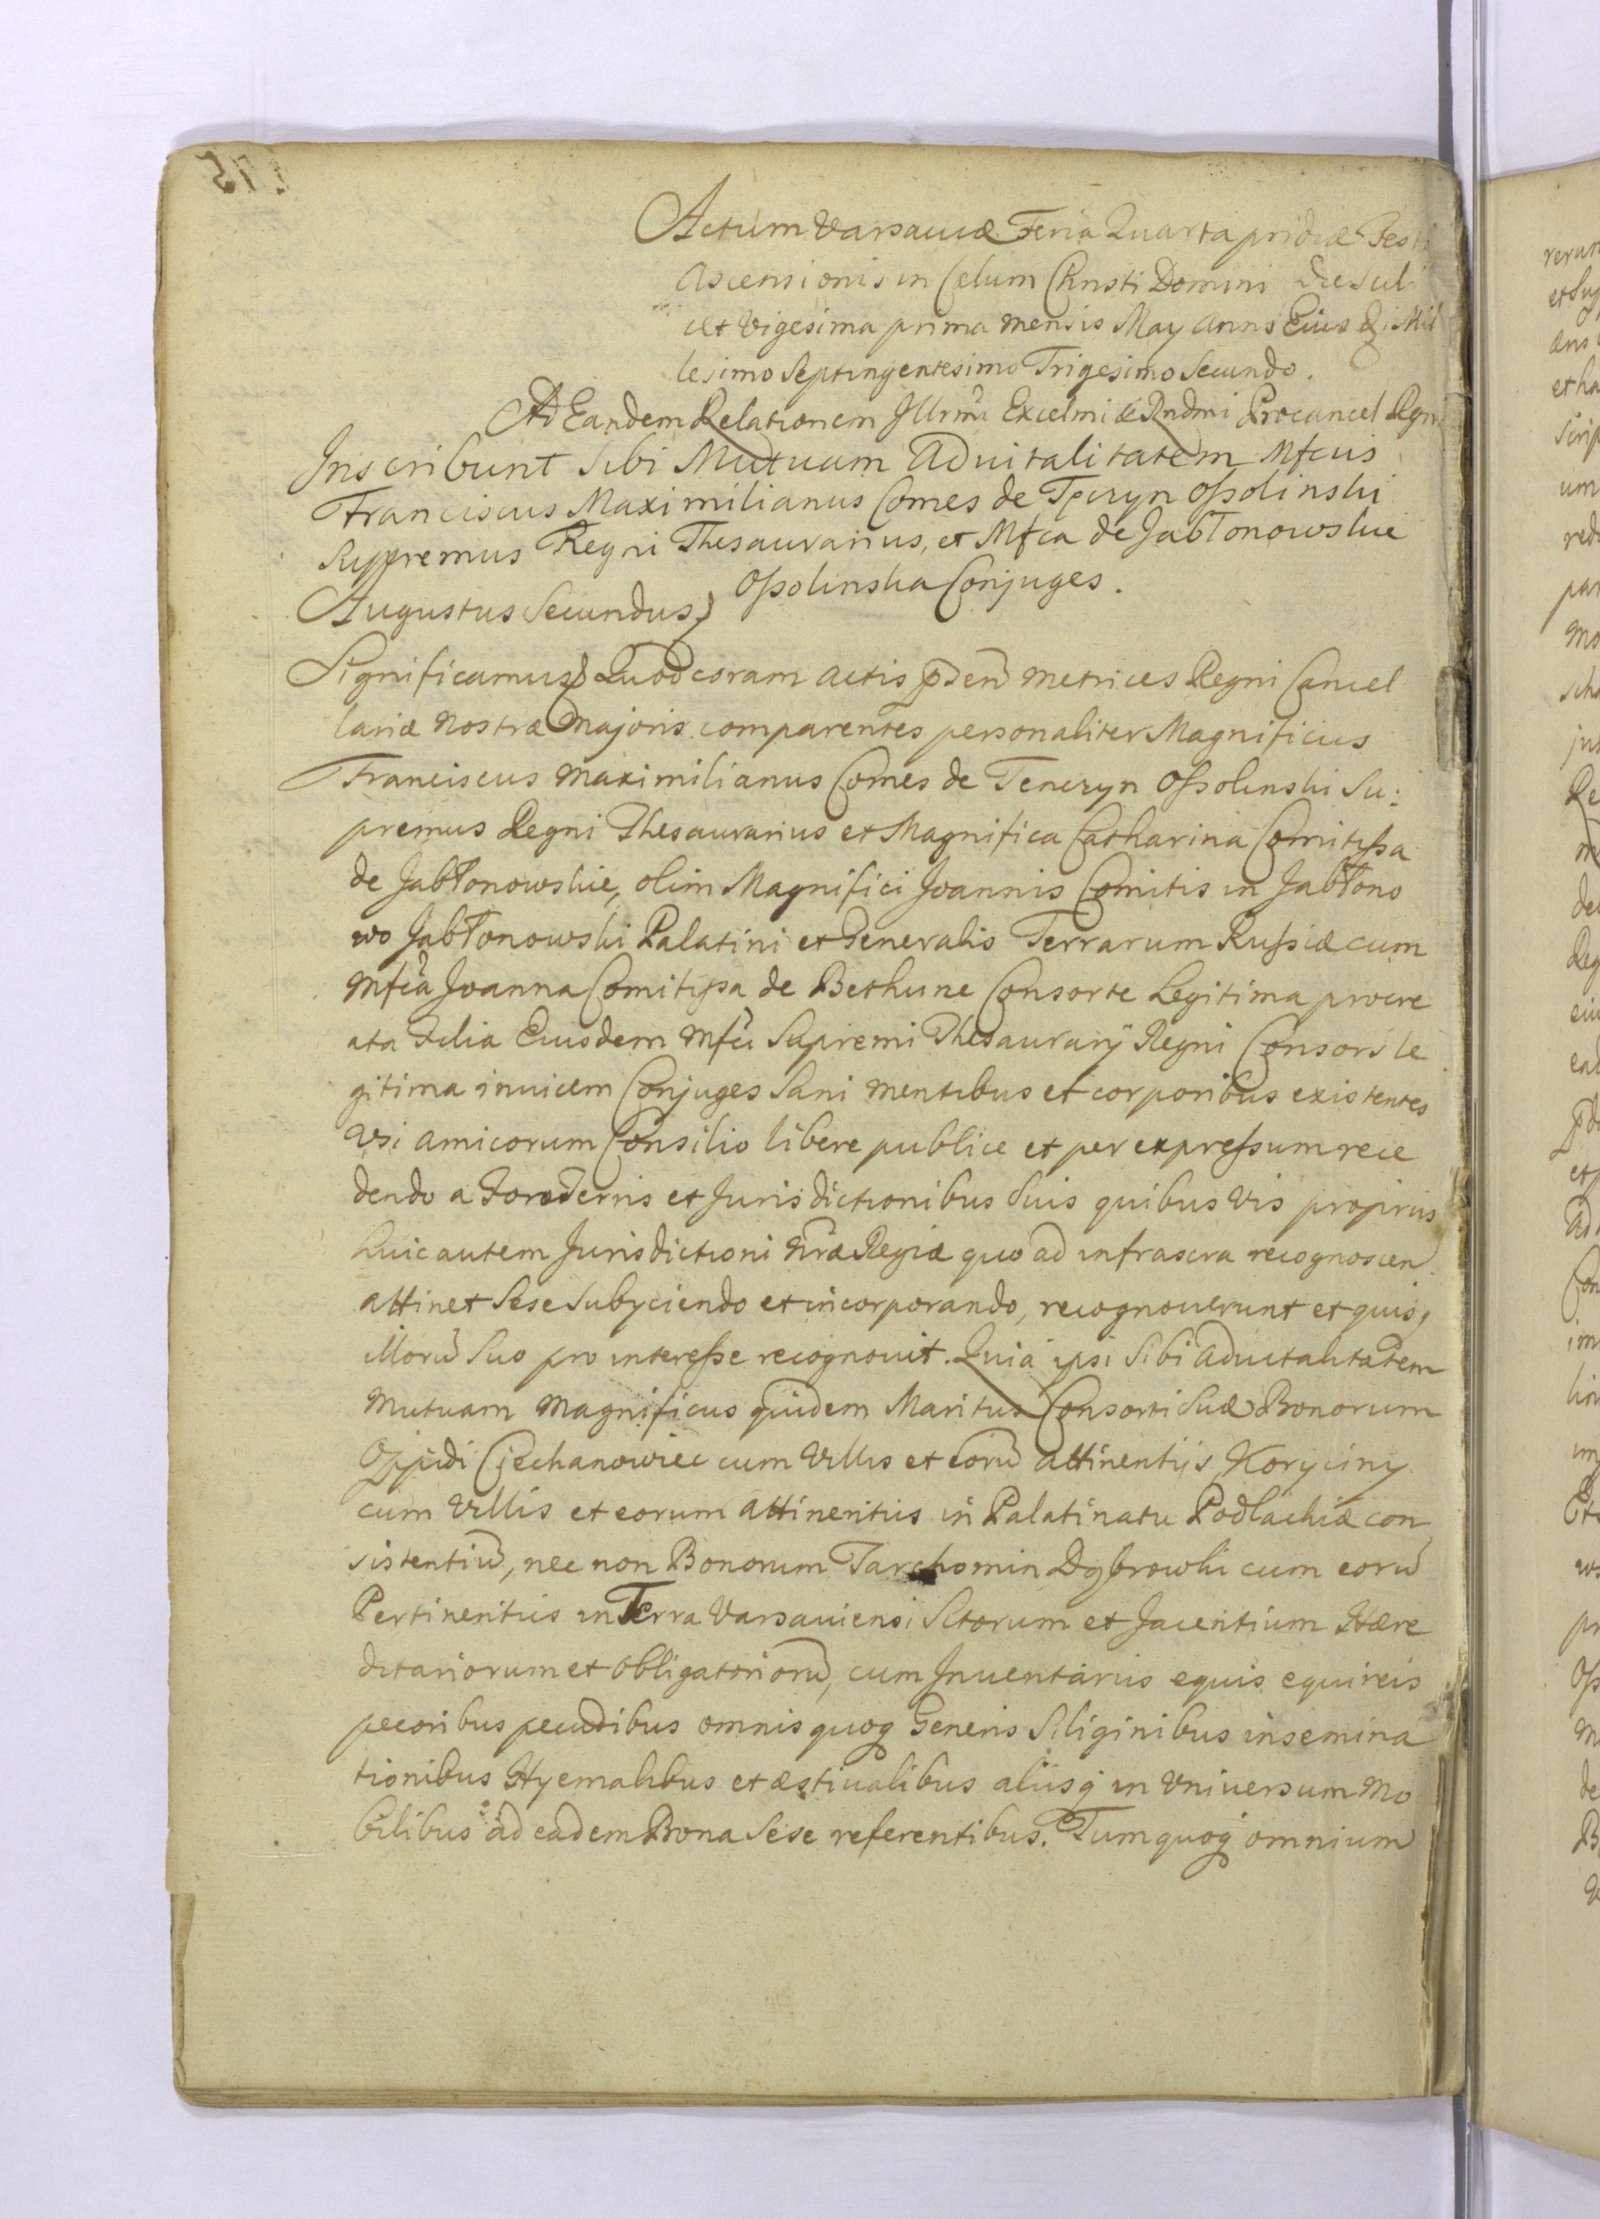 Actum Varsaviæ Feria Quarta pridiæ Festi
Ascensionis in Cælum Christi Domini die Scili
cet Vigesima prima mensis May Anno Eius Mil
lesimo Septingentesimo Trigesimo Secundo.
Ad Eandem Relationem Illrmi Excelmi & Rndmi Procancel Regni
Inscribunt Sibi Mutuam Advitalitatem Mfcus
Franciscus Maximilianus Comes de Tęczyn Ossolinski
Suppremus Regni Thesaurarius, et Mfca de Jabłonowskie
Ossolinska Conjuges.
Augustus Secundus
Significamus Quod coram actis pden Metrices Regni Cancel
lariæ Nostræ Majoris comparentes personaliter Magnificus
Franciscus Maximilianus Comes de Tenczyn Ossolinski Su:
premus Regni Thesaurarius et Magnifica Catharina Comitissa
de Jabłonowskie, olim Magnifici Joannis Comitis in Jabłono
wo Jabłonowski Palatini et Generalis Terrarum Russiæ cum
Mfca Joanna Comitissa de Bethune Consorte Legitima procre
ata Filia Eiusdem Mfci Supremi Thesaurarÿ Regni Consors le
gitima invicem Conjuges Sani mentibus et corporibus existentes
Usi amicorum Consilio libere publice et per expressum rece
dendo a Foro Terris et Jurisdictionibus Suis quibus Vis propriis
huic autem Jurisdictioni Nræ Regiæ quo ad infrascra recognoscen
attinet Sese Subyciendo et incorporando, recognoverunt et quisq
illorũ Suo pro interesse recognovit. Quia ipsi Sibi Advitalitatem
Mutuam Magnificus quidem Maritus Consorti Suæ Bonorum
Oppidi Ciechanowiec cum Villis et eorũ attinentÿs, Koryciny
cum Villis et eorum attinentiis in Palatinatu Podlachiæ con
sistentiũ, nec non Bonorum Tarchomin Dąbrowki cum eorũ
Pertinentiis in Terra Varsaviensi Sitorum et Jacentium Hære
ditariorum et obligatoriorũ, cum Inventariis equis equireis
pecoribus pecudibus omnis quoq Generis Siliginibus insemina
tionibus Hyemalibus et æstivalibus aliisq in Universum Mo
bilibus ad eadem Bona Sese referentibus. Tum quoq omnium